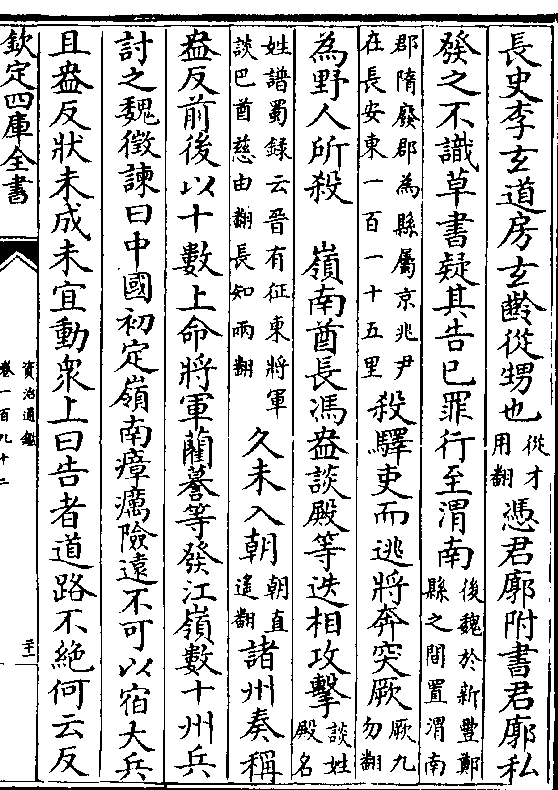 長史李玄道房玄齡從甥也從才用翻憑君廓附書君廓私
發之不識草書疑其告已罪行至渭南後魏於新豐鄭縣之間置渭南
郡隋廢郡為縣屬京兆尹在長安東一百一十五里殺驛吏而逃將奔突厥厥九勿翻
為野人所殺　嶺南酋長馮盎談殿等迭相攻擊談姓殿名
姓譜蜀錄云晉有征東將軍談巴酋慈由翻長知兩翻久未入朝朝直遙翻諸州奏稱
盎反前後以十數上命將軍藺謩等發江嶺數十州兵
討之魏徵諫曰中國初定嶺南瘴癘險遠不可以宿大兵
且盎反狀未成未宜動衆上曰告者道路不絶何云反
欽定四庫全書
資治通鑑
卷一百九十二
二十